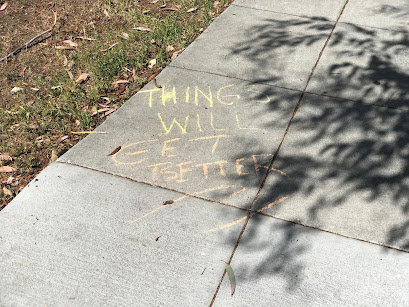 THINGS
WILL
GET
BETTER